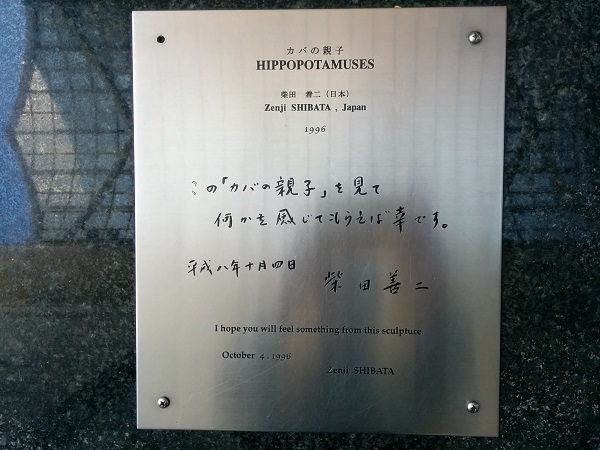 カバの親子
HIPPOPOTAMUSES
柴田 善二（日本）
Zenji SHIBATA , Japan
1996
この「カバの親子」を見て
何かを感じてもらえば幸です。
平成八年十月四日
柴田善二
I hope you will feel something from this sculpture.
October 4 . 1996
Zenji SHIBATA